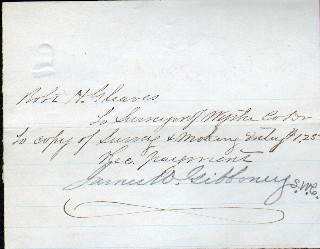 Robt H. Gleaves
To Surveyor of Wythe Co Dr
To copy of Survey & making Entry $1.25
Rec payment
James W. Gibboney S.W.C.